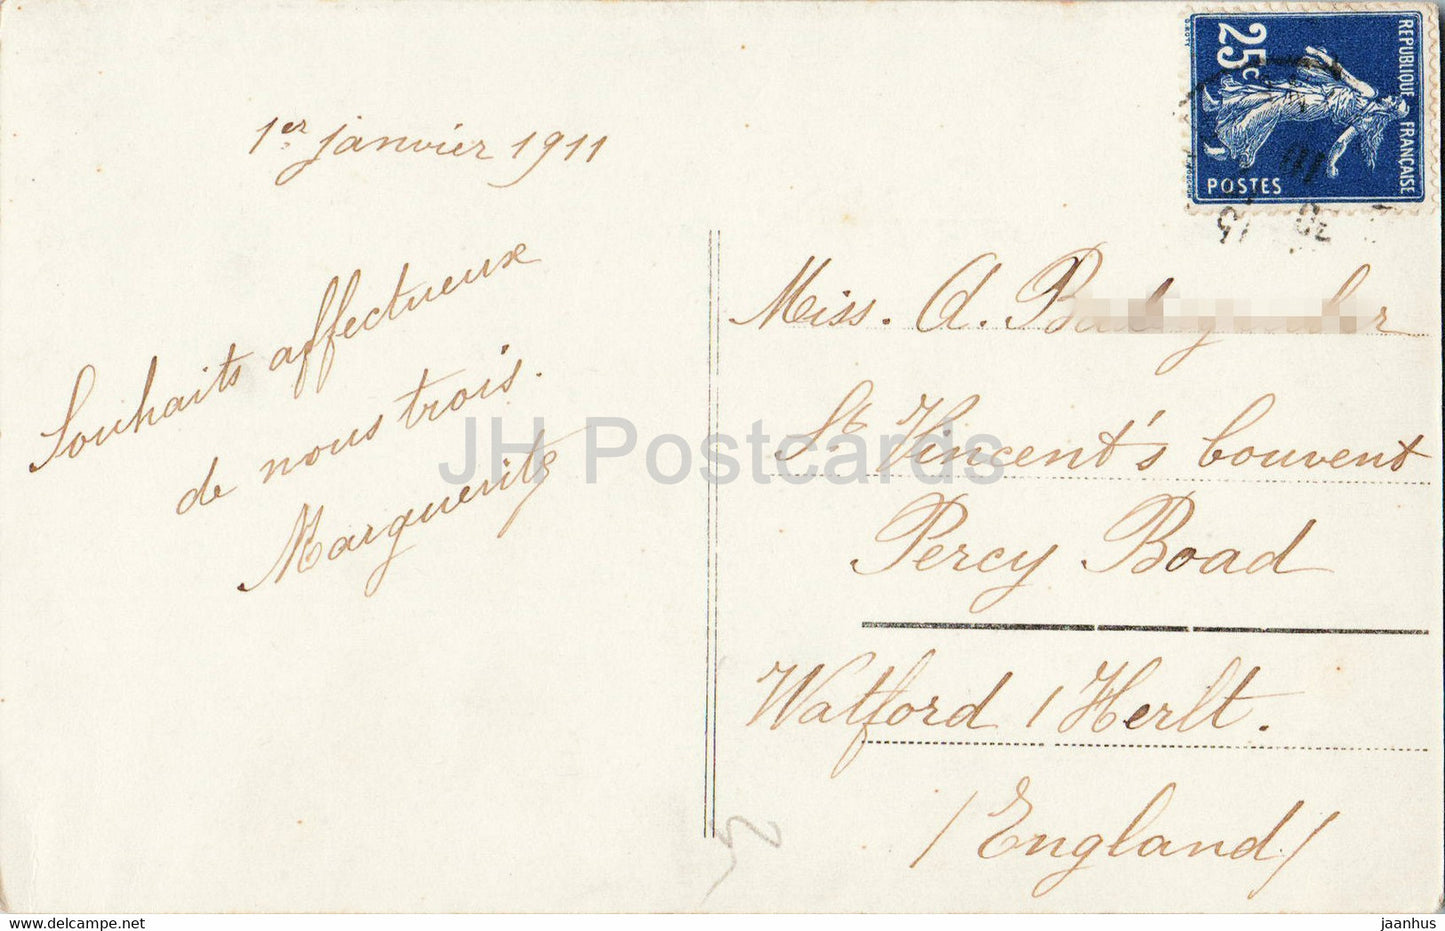 1er janvier 1911
Souhaits affectueux
de nous trois.
Marguerite
25c
REPUBLIQUE FRANÇAISE
POSTES
Miss. A.
St Vincent's Couvent
Percy Road
Watford / Herlt.
/ England /
JH Postcards
www.delcampe.net
jaanhus